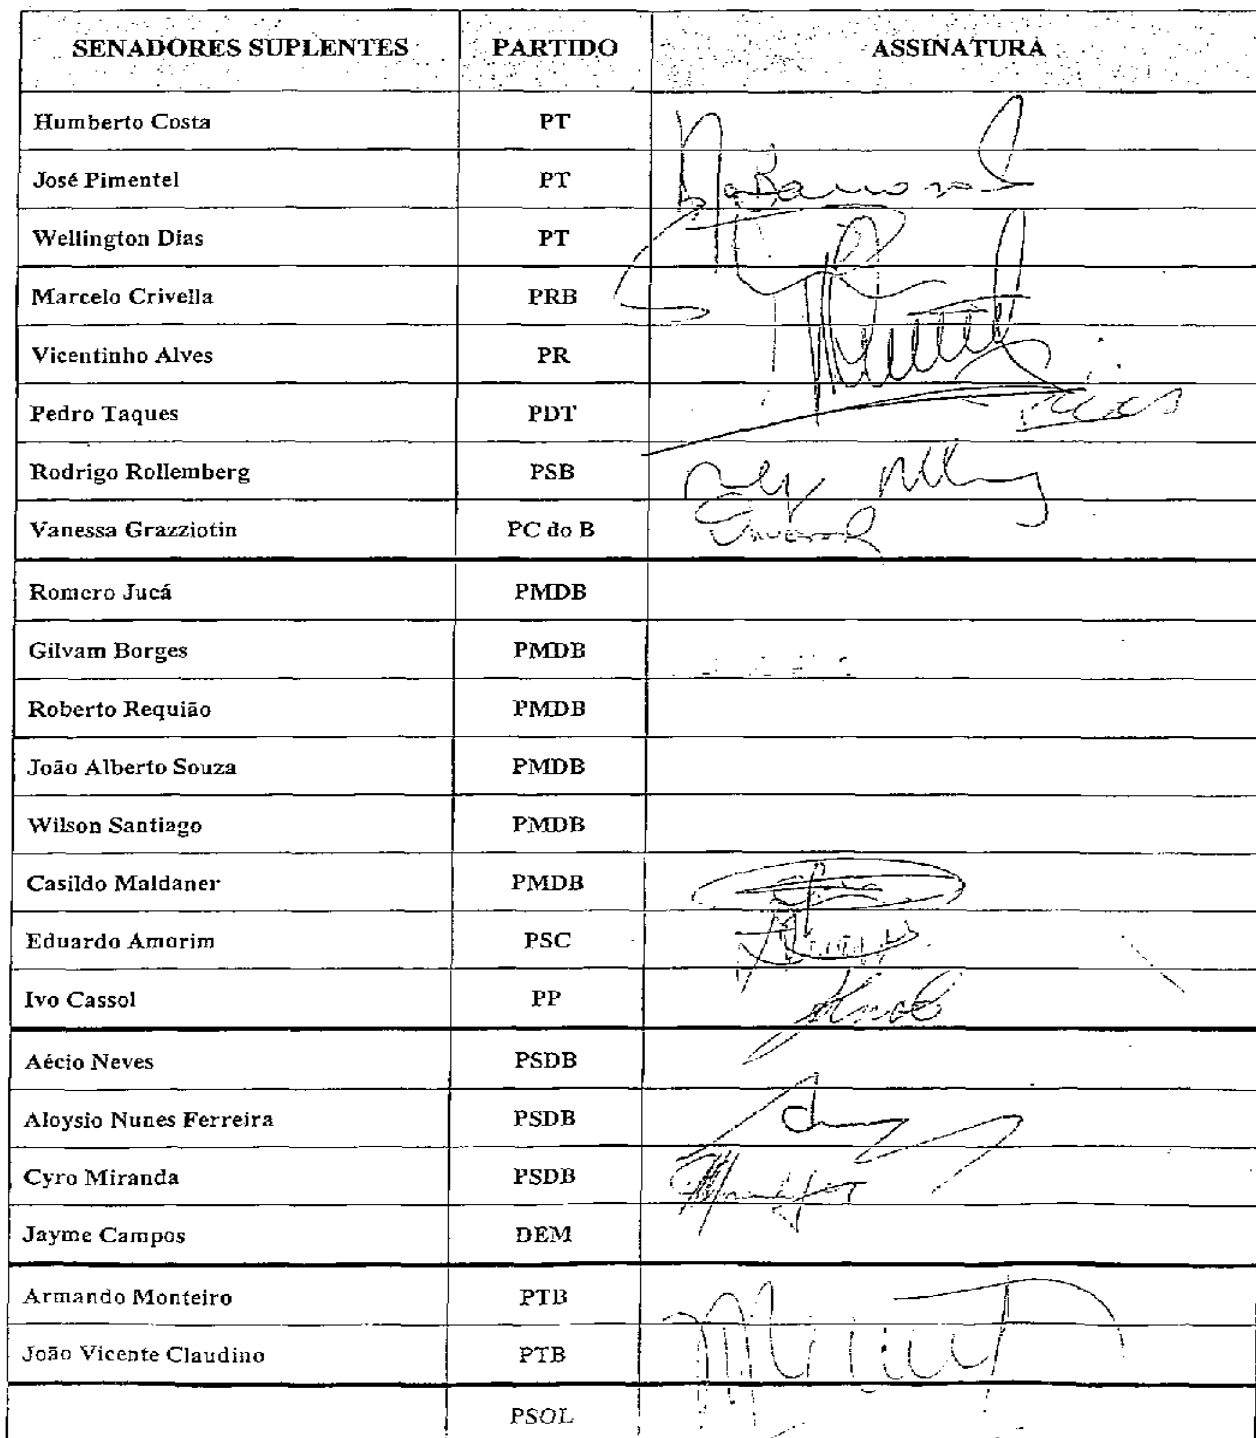 SENADORES SUPLENTES PARTIDO ASSINATURA
Humberto Costa PT
José Pimentel PT
Wellington Dias PT
Marcelo Crivella PRB
Vicentinho Alves PR
Pedro Taques PDT
Rodrigo Rollemberg PSB
Vanessa Grazziotin PC do B
Romero Jucá PMDB
Gilvam Borges PMDB
Roberto Requião PMDB
João Alberto Souza PMDB
Wilson Santiago PMDB
Casildo Maldaner PMDB
Eduardo Amorim PSC
Ivo Cassol PP
Aécio Neves PSDB
Aloysio Nunes Ferreira PSDB
Cyro Miranda PSDB
Jayme Campos DEM
Armando Monteiro PTB
João Vicente Claudino PTB
PSOL